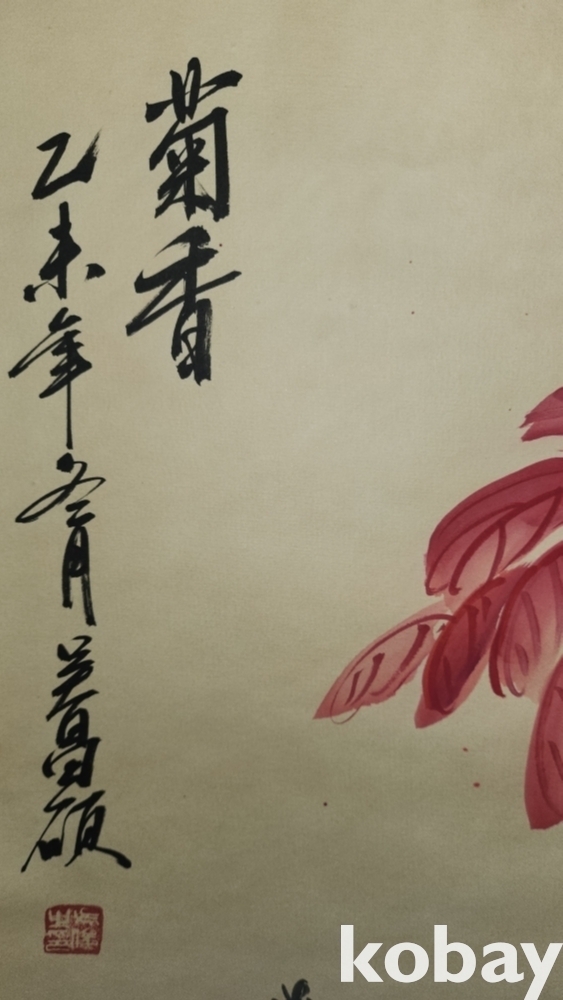 菊香
乙未年冬月吳昌碩
kobay